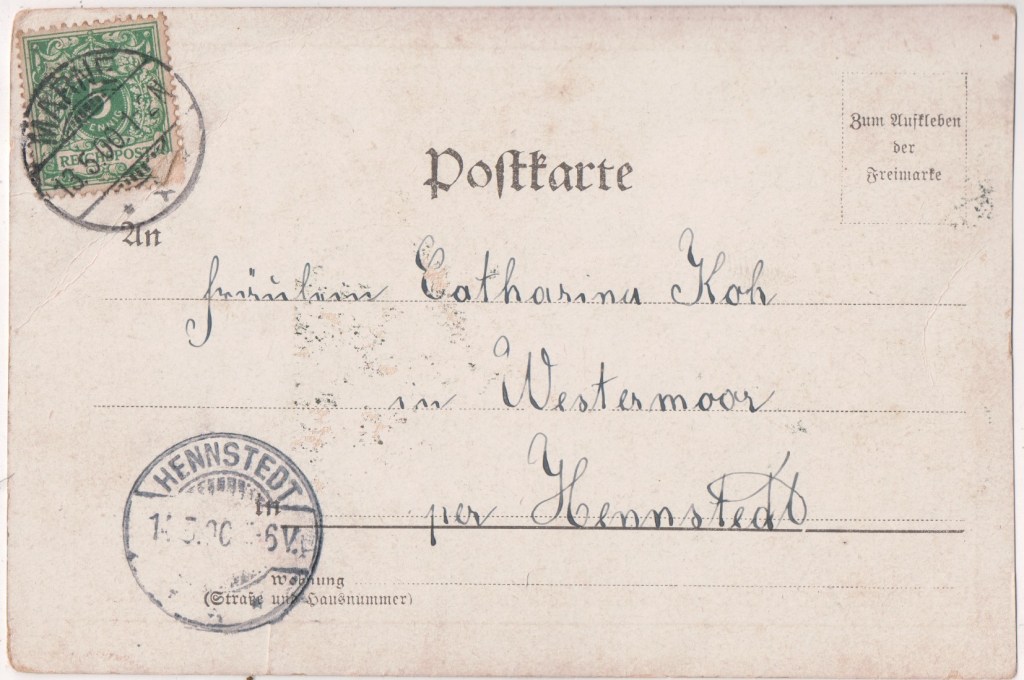 MARNE
13.5.00.
5
PFENNIG
REICHSPOST
Postkarte
Zum Aufkleben
der
Freimarke
An
Fräulein Catharina Koh
in Westermoor
HENNSTEDT
in
per Hennstedt
6 V.
Wohnung
(Straße und Hausnummer)